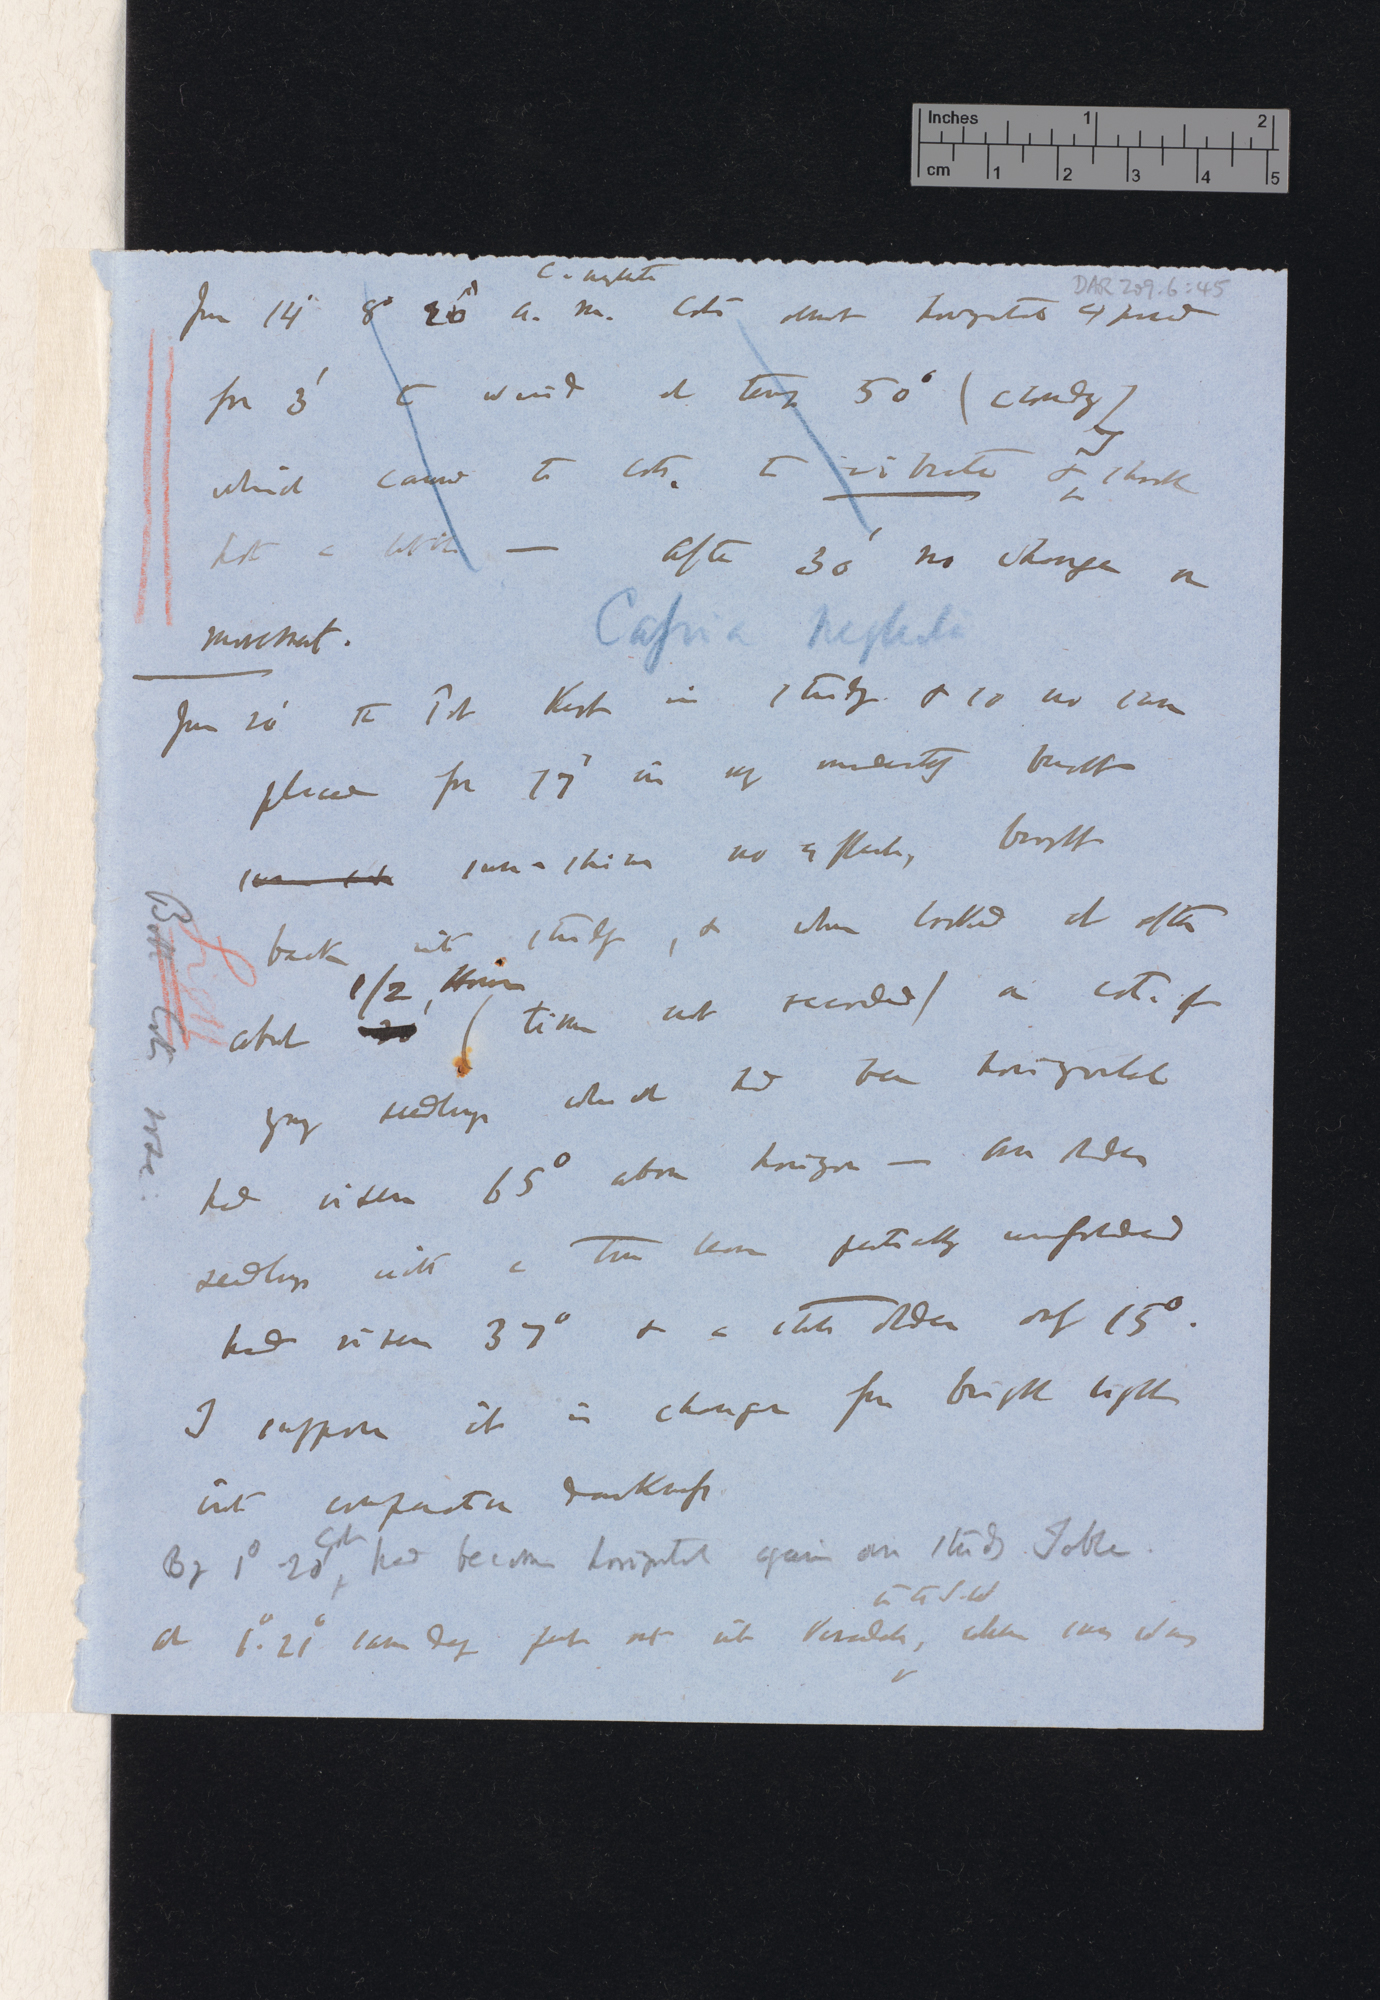 Inches 1 2
cm 1 2 3 4 5
DAR 209.6:45
C. neglecta
Jan 14' 8° 20' a. m. Cots almost horizontal exposed
for 3' to wind at temp 50° (cloudy)
which caused to cots. to vibrate & shook
not a little — After 30' no change or
movement.
Cassia neglecta
Jan 20' The Pot Kept in study & so no sun
placed for 17' in my moderately bright
sun-shine no effect, brought
back into study, & when looked at after
about 1/2 Hour (time not recorded) a cot. of
young seedlings which had been horizontal
had risen 65° above horizon — an older
seedlings with a true leaf partially unfolded
had risen 37° & a little older only 15°.
I suppose it is change from bright light
into comparative darkness
By 1° 20' cots had become horizontal again on study Table.
at 1°. 21' same day put out into Verandah, when sun was
Both cots rose.